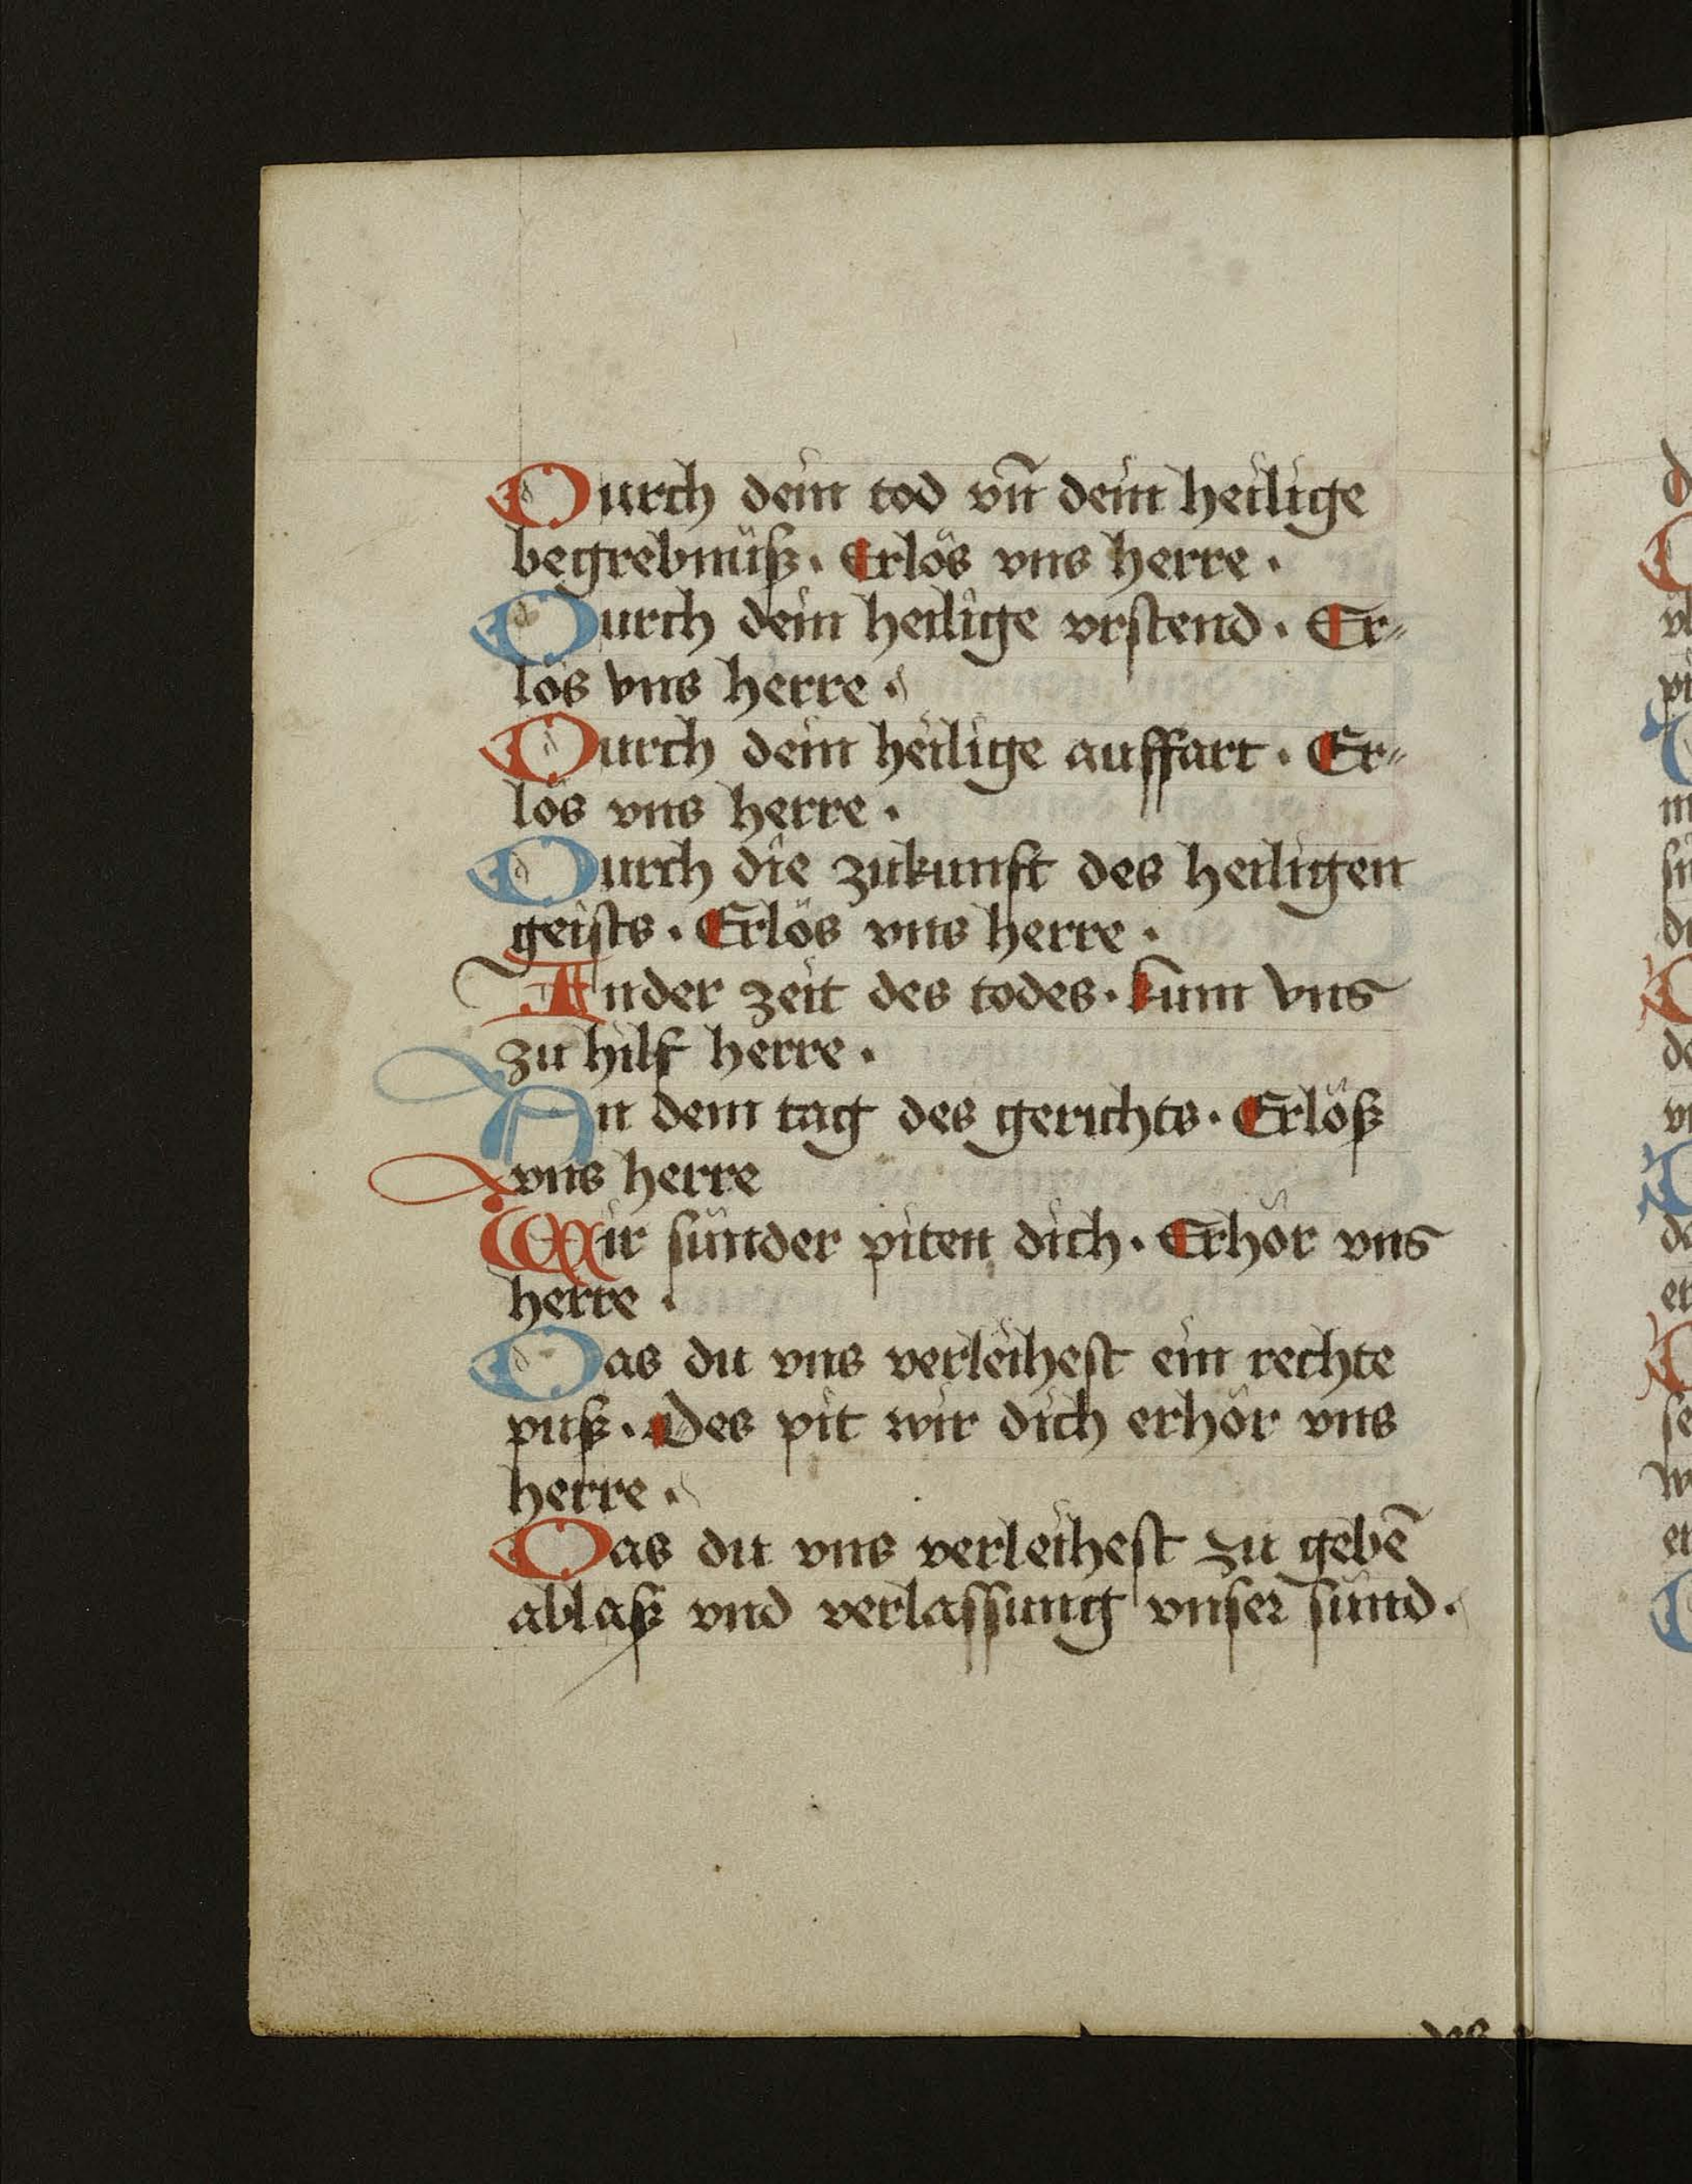 Durch dein tod vn̄ dein heilige
begrebnüſz · Erlös vns herre ·
Durch dein heilige vrſtend · Er⸗
lös vns herre ·
Durch dein heilige auffart · Er⸗
lös vns herre ·
Durch die zukunft des heiligen
geiſts · Erlös vns herre ·
Ander zeit des todes · kum vns
zu hilf herre ·
An dem tag des gerichts · Erlöſz
vns herre
Wir ſünder piten dich · Erhör vns
herre ·
Das du vns verleiheſt ein rechte
puſz · Des pit wir dich erhör vns
herre ·
Das du vns verleiheſt zu gebē
ablaſz vnd verlaſſung vnſer ſünd ·
des